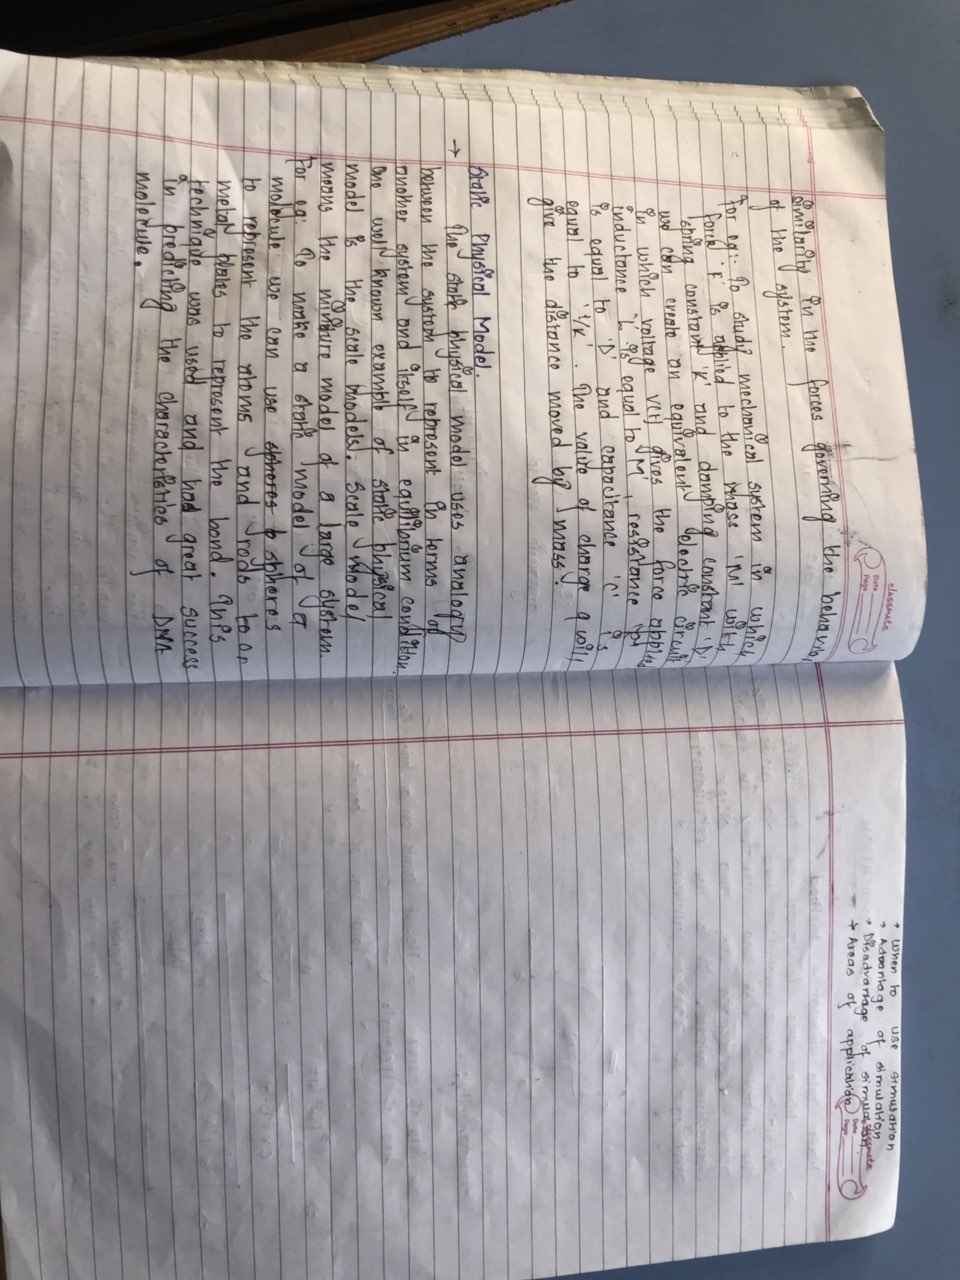 classmate
Date
Page
similarity in the forces governing the behavior
of the system.
for eg:- To study mechanical system in which
force 'F' is applied to the mass 'M' with
spring constant 'K' and damping constant 'D'
we can create an equivalent electric circuit
in which voltage v(t) gives the force applied
inductance 'L' is equal to 'M', resistance 'R'
is equal to 'D' and capacitance 'C' is
equal to '1/K'. The value of charge q will
give the distance moved by mass.
Static Physical Model.
→ The static physical model uses analogy
between the system to represent in terms of
another system and itself in equilibrium condition.
one well known example of static physical
model is the scale models. Scale Model
means the miniture model of a large system.
For eg: To make a static model of a
molecule we can use spheres
to represent the atoms and rods to or
metal plates to represent the bond. This
technique was used and had great success
in predicting the characteristics of DNA
molecule.
→ When to use simulation
→ Advantage of simulation
→ Disadvantage of simulation
→ Areas of application
classmate
Date
Page